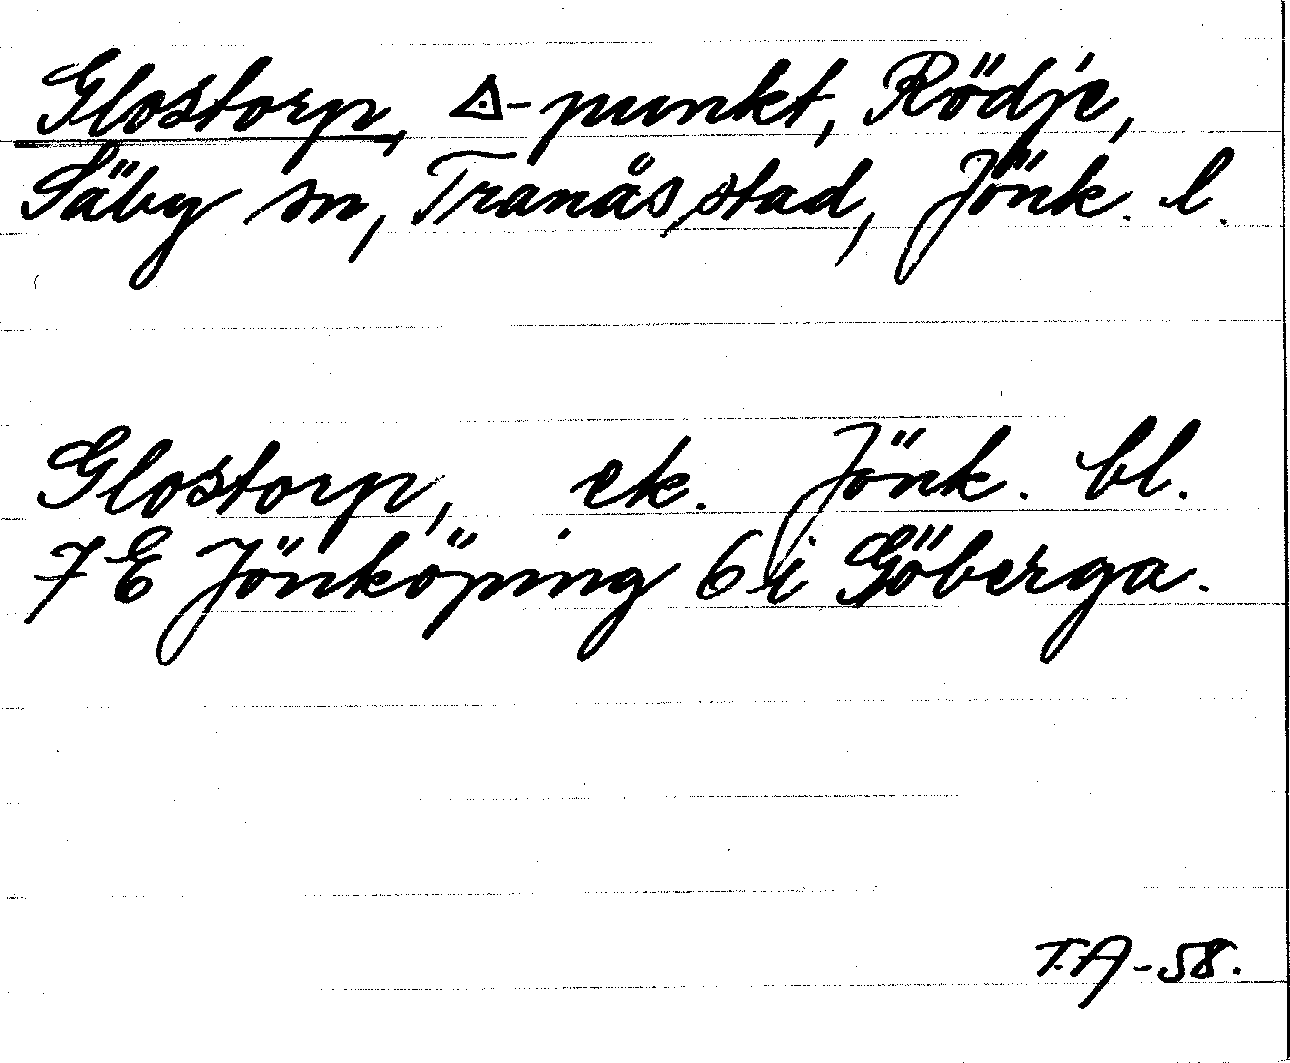 Glostorp, △-punkt, Rödje,
Säby sn, Tranås stad, Jönk. l.
Glostorp, ek. Jönk. bl.
7 E Jönköping 6 i Göberga.
T.A-58.